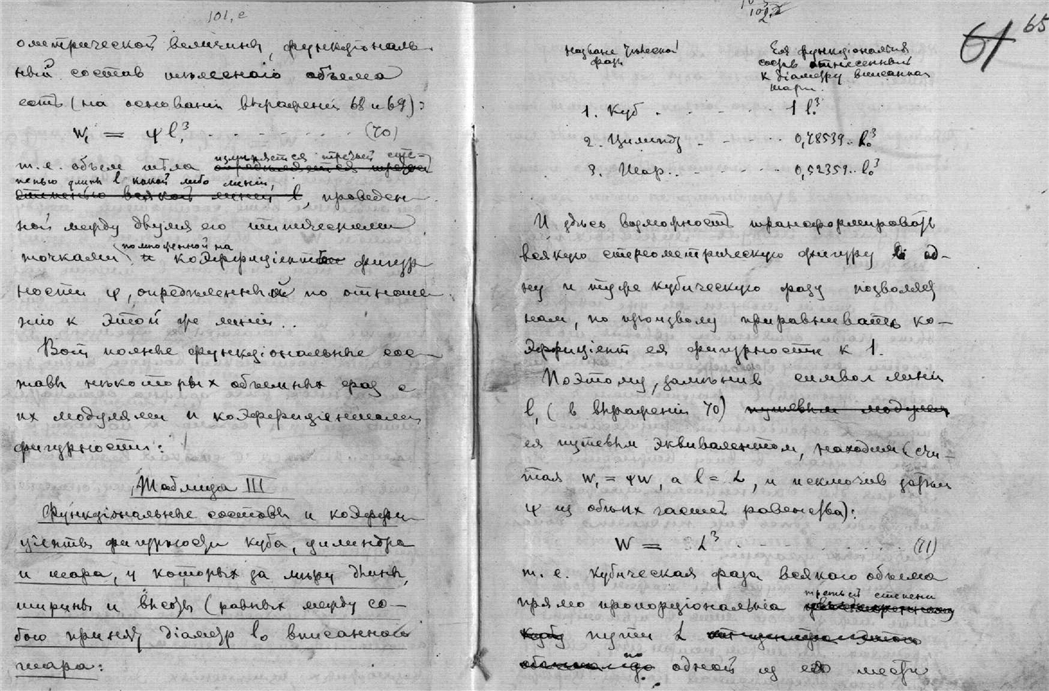 101,е
ометрической величины, функціональ-
ный состав тѣлеснаго объема
есть (на основаніи выраженій 68 и 69):
W₁ = φ l³ . . . . . (70)
т. е. объем тѣла измѣряется третьей сте-
пенью длины l какой либо линіи,
проведен-
ной между двумя его
точками помноженной на коэффиціент фигур-
ности φ, опредѣленный по отноше-
нію к этой же линіи..
Вот полные функціональные сос-
тавы нѣкоторых объемных фаз с
их модулями и коэффиціентами
фигурности:
Таблица III
Функціональные составы и коэффи-
ціенты фигурности куба, цилиндра
и шара, у которых за мѣру длины,
ширины и высоты (равных между со-
бою принят діаметр l₀ вписаннаго
шара:
61 65
Названіе
фаз
Ея функціональный
состав отнесенный
к діаметру вписаннаго
шара.
1. Куб . . . . 1 l₀³
2. Цилиндр 0,78539.. l₀³
3. Шар. . . . 0,52359.. l₀³
И здѣсь возможность трансформировать
всякую стереометрическую фигуру в од-
ну и туже кубическую фазу позволяет
нам, по произволу приравнивать ко-
эффиціент ея фигурности к 1.
Поэтому, замѣнив символ линіи
l, (в выраженіи 70) путевым модулем
ея путевым эквивалентом, находим (счи-
тая W₁ = φW, а l = L, и исключив затѣм
φ из обѣих частей равенства):
W = L³ . . . . . (71)
т. е. кубическая фаза всякаго объема
прямо пропорціональна третьей степени
пути L
по одной из его